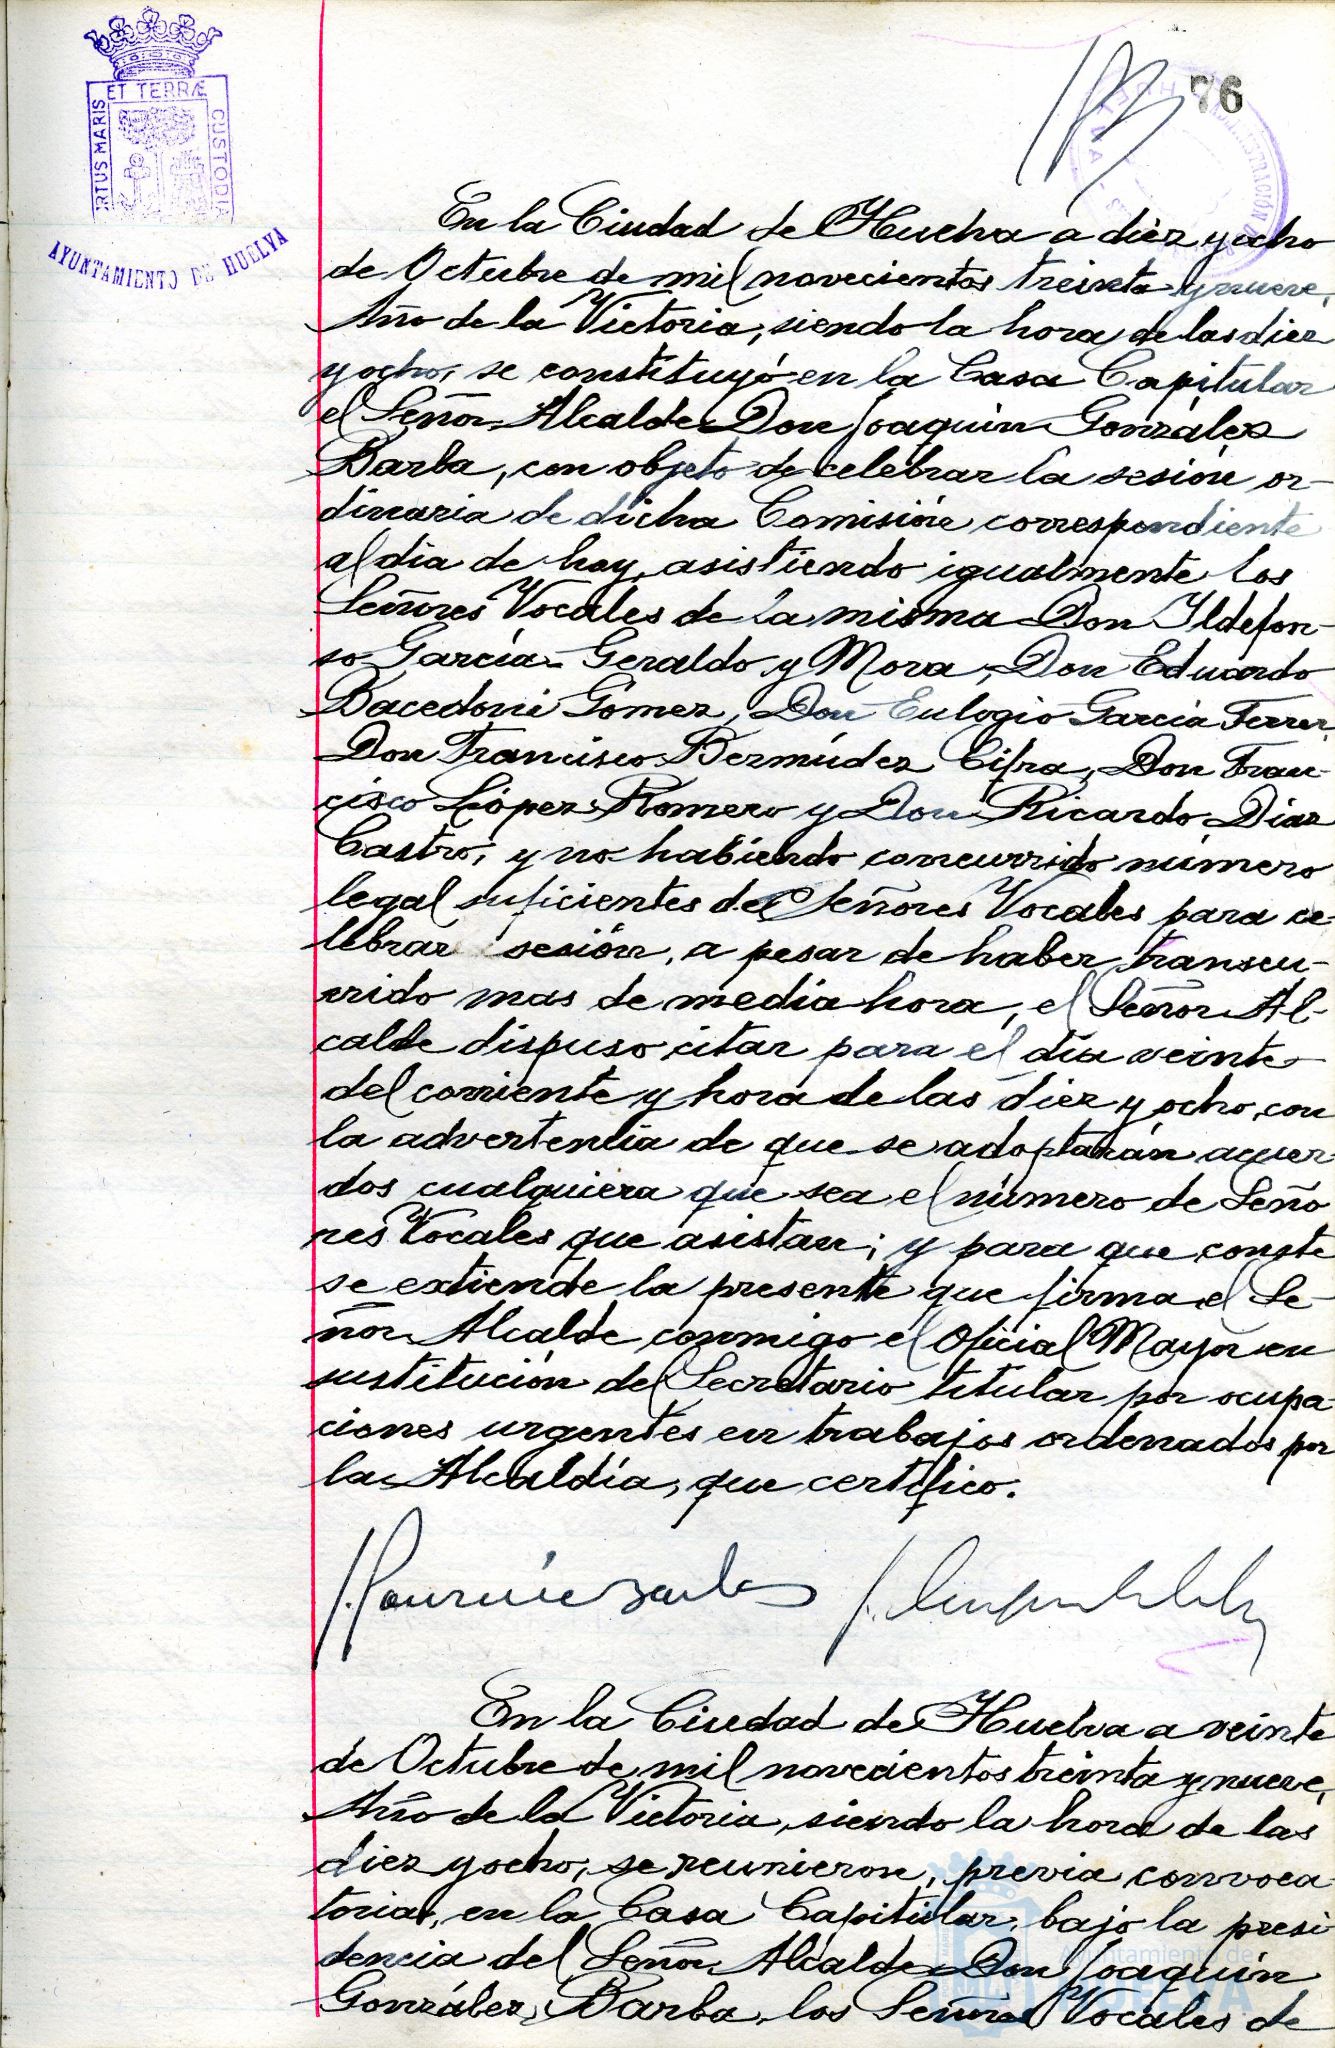 ET TERRÆ
RTUS MARIS
CUSTODIA
AYUNTAMIENTO DE HUELVA
76
HUELVA
En la Ciudad de Huelva a diez y ocho
de Octubre de mil novecientos treinta y nueve,
Año de la Victoria, siendo la hora de las diez
y ocho, se constituyó en la Casa Capitular
el Señor Alcalde Don Joaquín González
Barba, con objeto de celebrar la sesión or-
dinaria de dicha Comisión correspondiente
al dia de hoy, asistiendo igualmente los
Señores Vocales de la misma Don Ildefon-
so García-Geraldo y Mora, Don Eduardo
Bacedoni Gómez, Don Eulogio García Ferrer,
Don Francisco Bermúdez Cifra, Don Fran-
cisco López Romero y Don Ricardo Díaz
Castro, y no habiendo concurrido número
legal suficientes de Señores Vocales para ce-
lebrar sesión, a pesar de haber transcu-
rrido mas de media hora, el Señor Al-
calde dispuso citar para el dia veinte
del corriente y hora de las diez y ocho, con
la advertencia de que se adoptarán acuer-
dos cualquiera que sea el número de Seño
res Vocales que asistan; y para que conste
se extiende la presente que firma el Se-
ñor Alcalde conmigo el Oficial Mayor en
sustitución del Secretario titular por ocupa-
ciones urgentes en trabajos ordenados por
la Alcaldía, que certifico.
En la Ciudad de Huelva a veinte
de Octubre de mil novecientos treinta y nueve,
Año de la Victoria, siendo la hora de las
diez y ocho, se reunieron, previa convoca-
toria, en la Casa Capitular, bajo la presi
dencia del Señor Alcalde Don Joaquín
González Barba, los Señores Vocales de
Ayuntamiento de
HUELVA